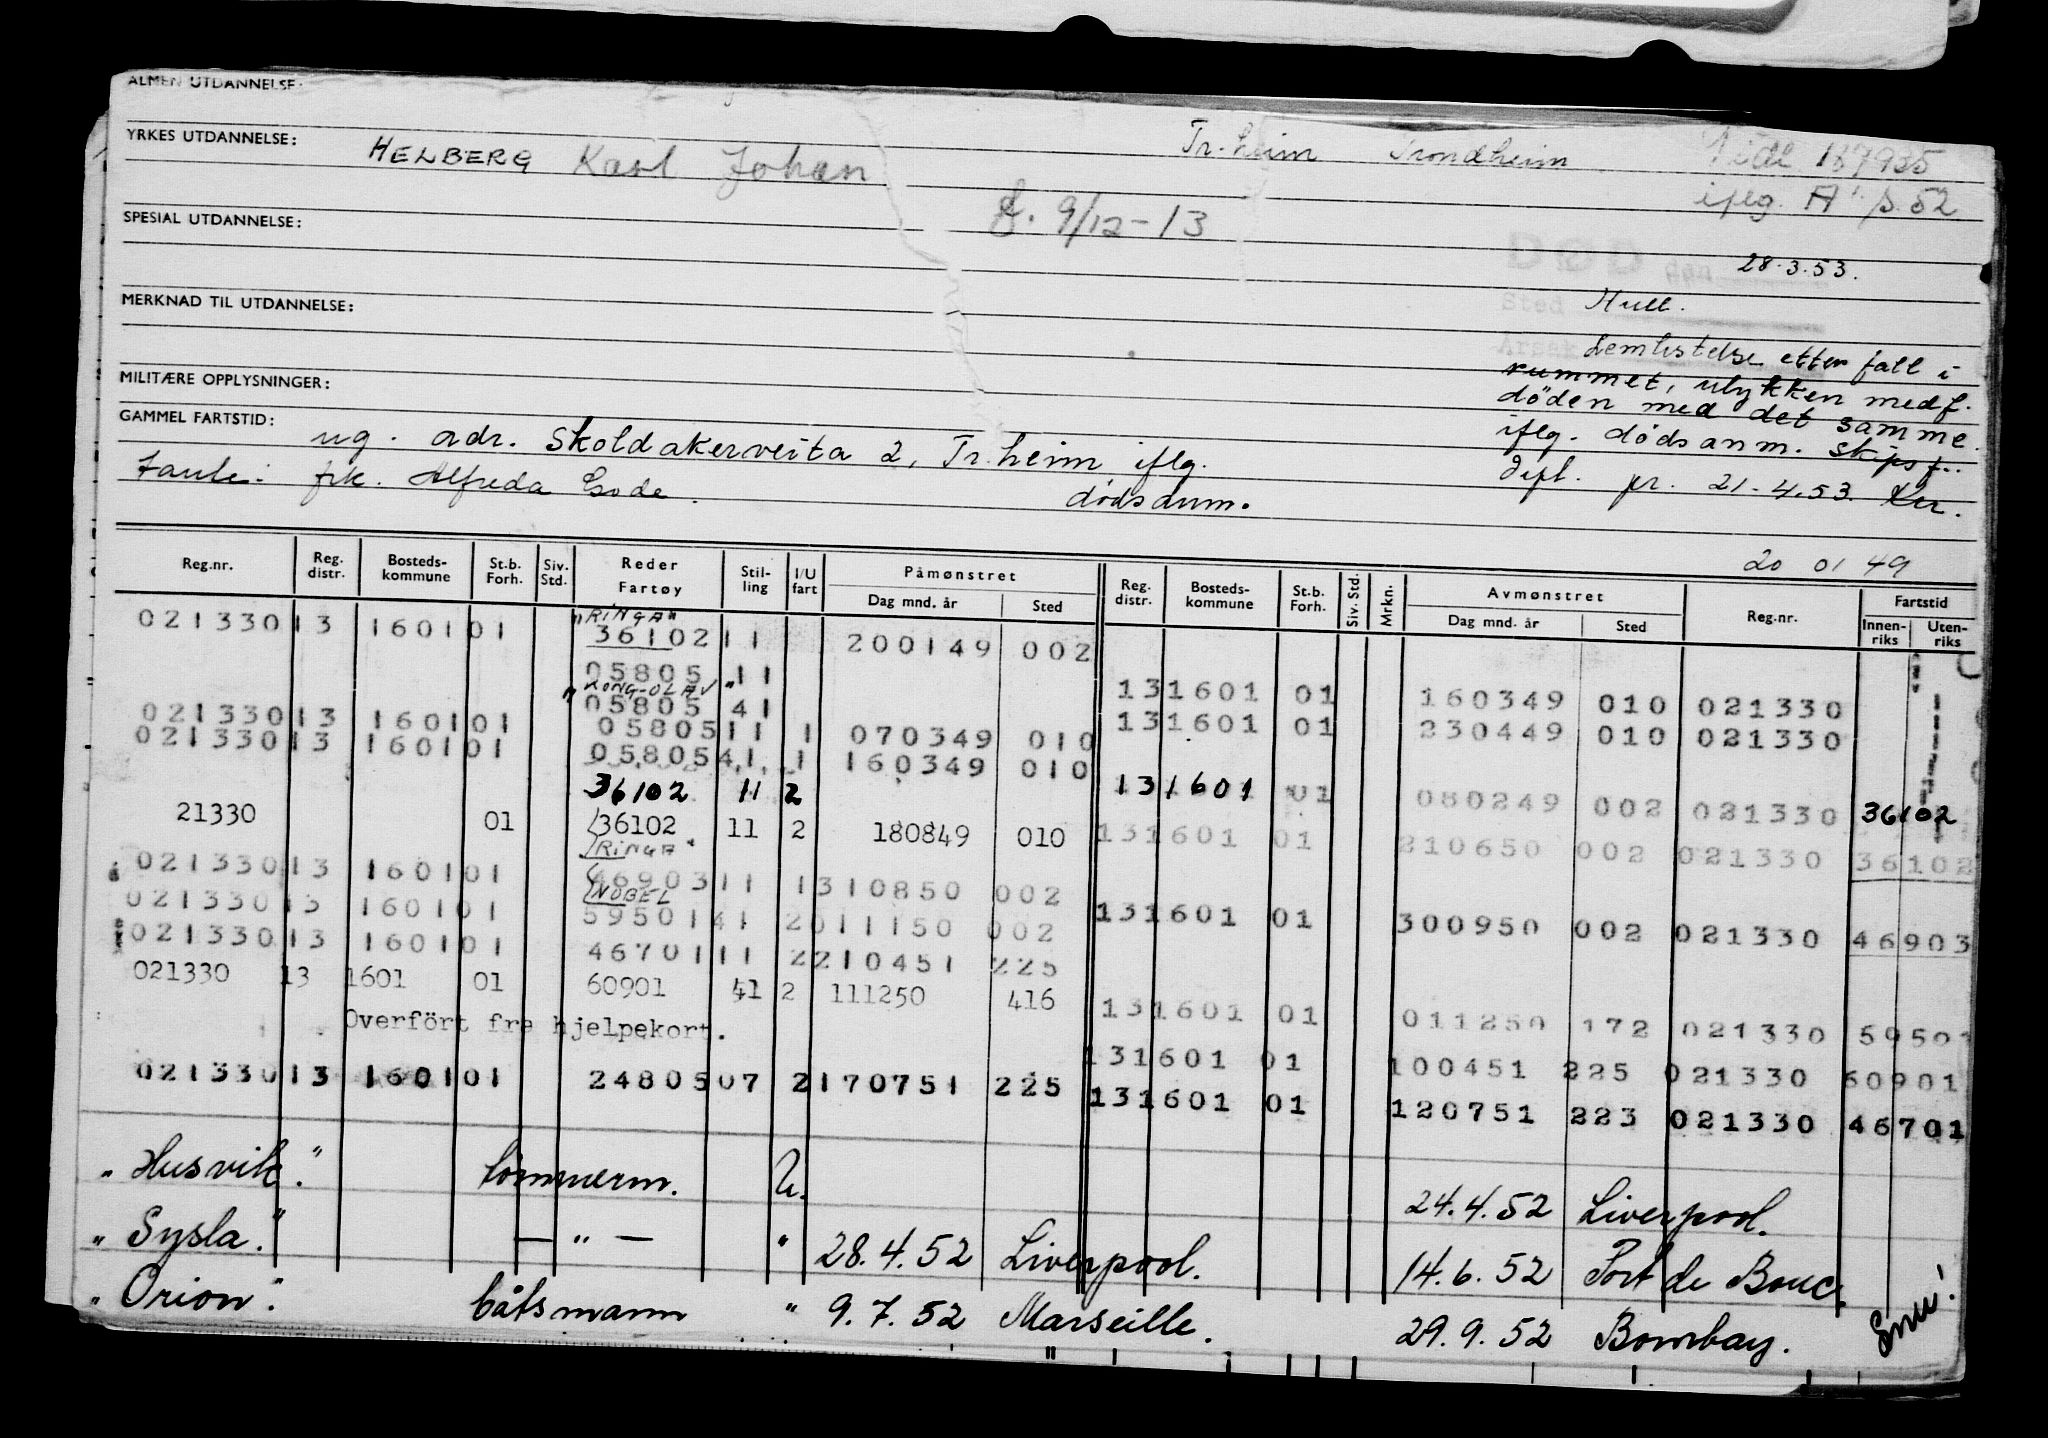 ALMEN UTDANNELSE:
YRKES UTDANNELSE: HELBERG Karl Johan Tr.heim Trondheim 187935
f. 9/12-13 iflg. A. s. 52
SPESIAL UTDANNELSE:
DØD den 28.3.53.
MERKNAD TIL UTDANNELSE: Sted Hull.
Årsak Lemlestelse etter fall i
MILITÆRE OPPLYSNINGER: rummet, ulykken medf.
døden med det samme
GAMMEL FARTSTID: iflg. dødsanm. skipsf..
ug. adr. Skoldakerveita 2, Tr.heim iflg. dødsanm.
Tante: frk. Alfreda Gode. pr. 21.4.53
20 01 49
Reg.nr. Reg. distr. Bosteds-kommune St.b. Forh. Siv. Std. Reder Fartøy Stil-ling I/U fart Påmønstret Dag mnd. år Sted Reg. distr. Bosteds-kommune St.b. Forh. Siv. Std. Mrkn. Avmønstret Dag mnd. år Sted Reg.nr. Fartstid Innen-riks Uten-riks
"RINGA"
021330 13 1601 01 36102 11 200149 002
05805 11 131601 01 160349 010 021330
"KONG-OLAV"
05805 41 131601 01 230449 010 021330
021330 13 1601 01 05805 11 1 070349 010
021330 13 1601 01 05805 41 1 160349 010
36102 11 2 131601 01 080249 002 021330 36102
21330 01 36102 11 2 180849 010 131601 01 210650 002 021330 36102
"RINGA"
021330 13 1601 01 46903 11 1 310850 002 131601 01 300950 002 021330 46903
NOBEL
021330 13 1601 01 59501 41 2 011150 002
021330 13 1601 01 46701 11 2 210451 225
021330 13 1601 01 60901 41 2 111250 416 131601 01 011250 172 021330 59501
Overfört fra hjelpekort. 131601 01 100451 225 021330 60901
021330 13 1601 01 24805 07 2 170751 225 131601 01 120751 223 021330 46701
"Husvik." tømmerm. U. 24.4.52 Liverpool.
"Sysla." — " — " 28.4.52 Liverpool. 14.6.52 Port de Bouc.
"Orion." båtsmann " 9.7.52 Marseille. 29.9.52 Bombay.